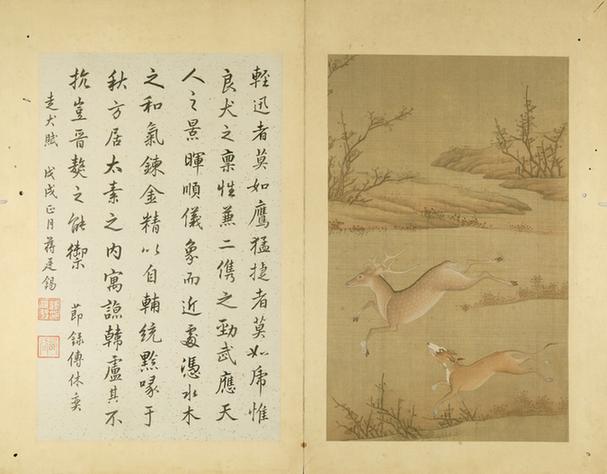 輕迅者莫如鷹猛捷者莫如虎惟
良犬之稟性兼二儁之勁武應天
人之景暉順儀象而近處憑水木
之和氣鍊金精以自輔統黔喙于
秋方居太素之內寓諒韓盧其不
抗豈晋獒之能禦 節錄傅休奕
走犬賦 戊戌正月蔣廷錫